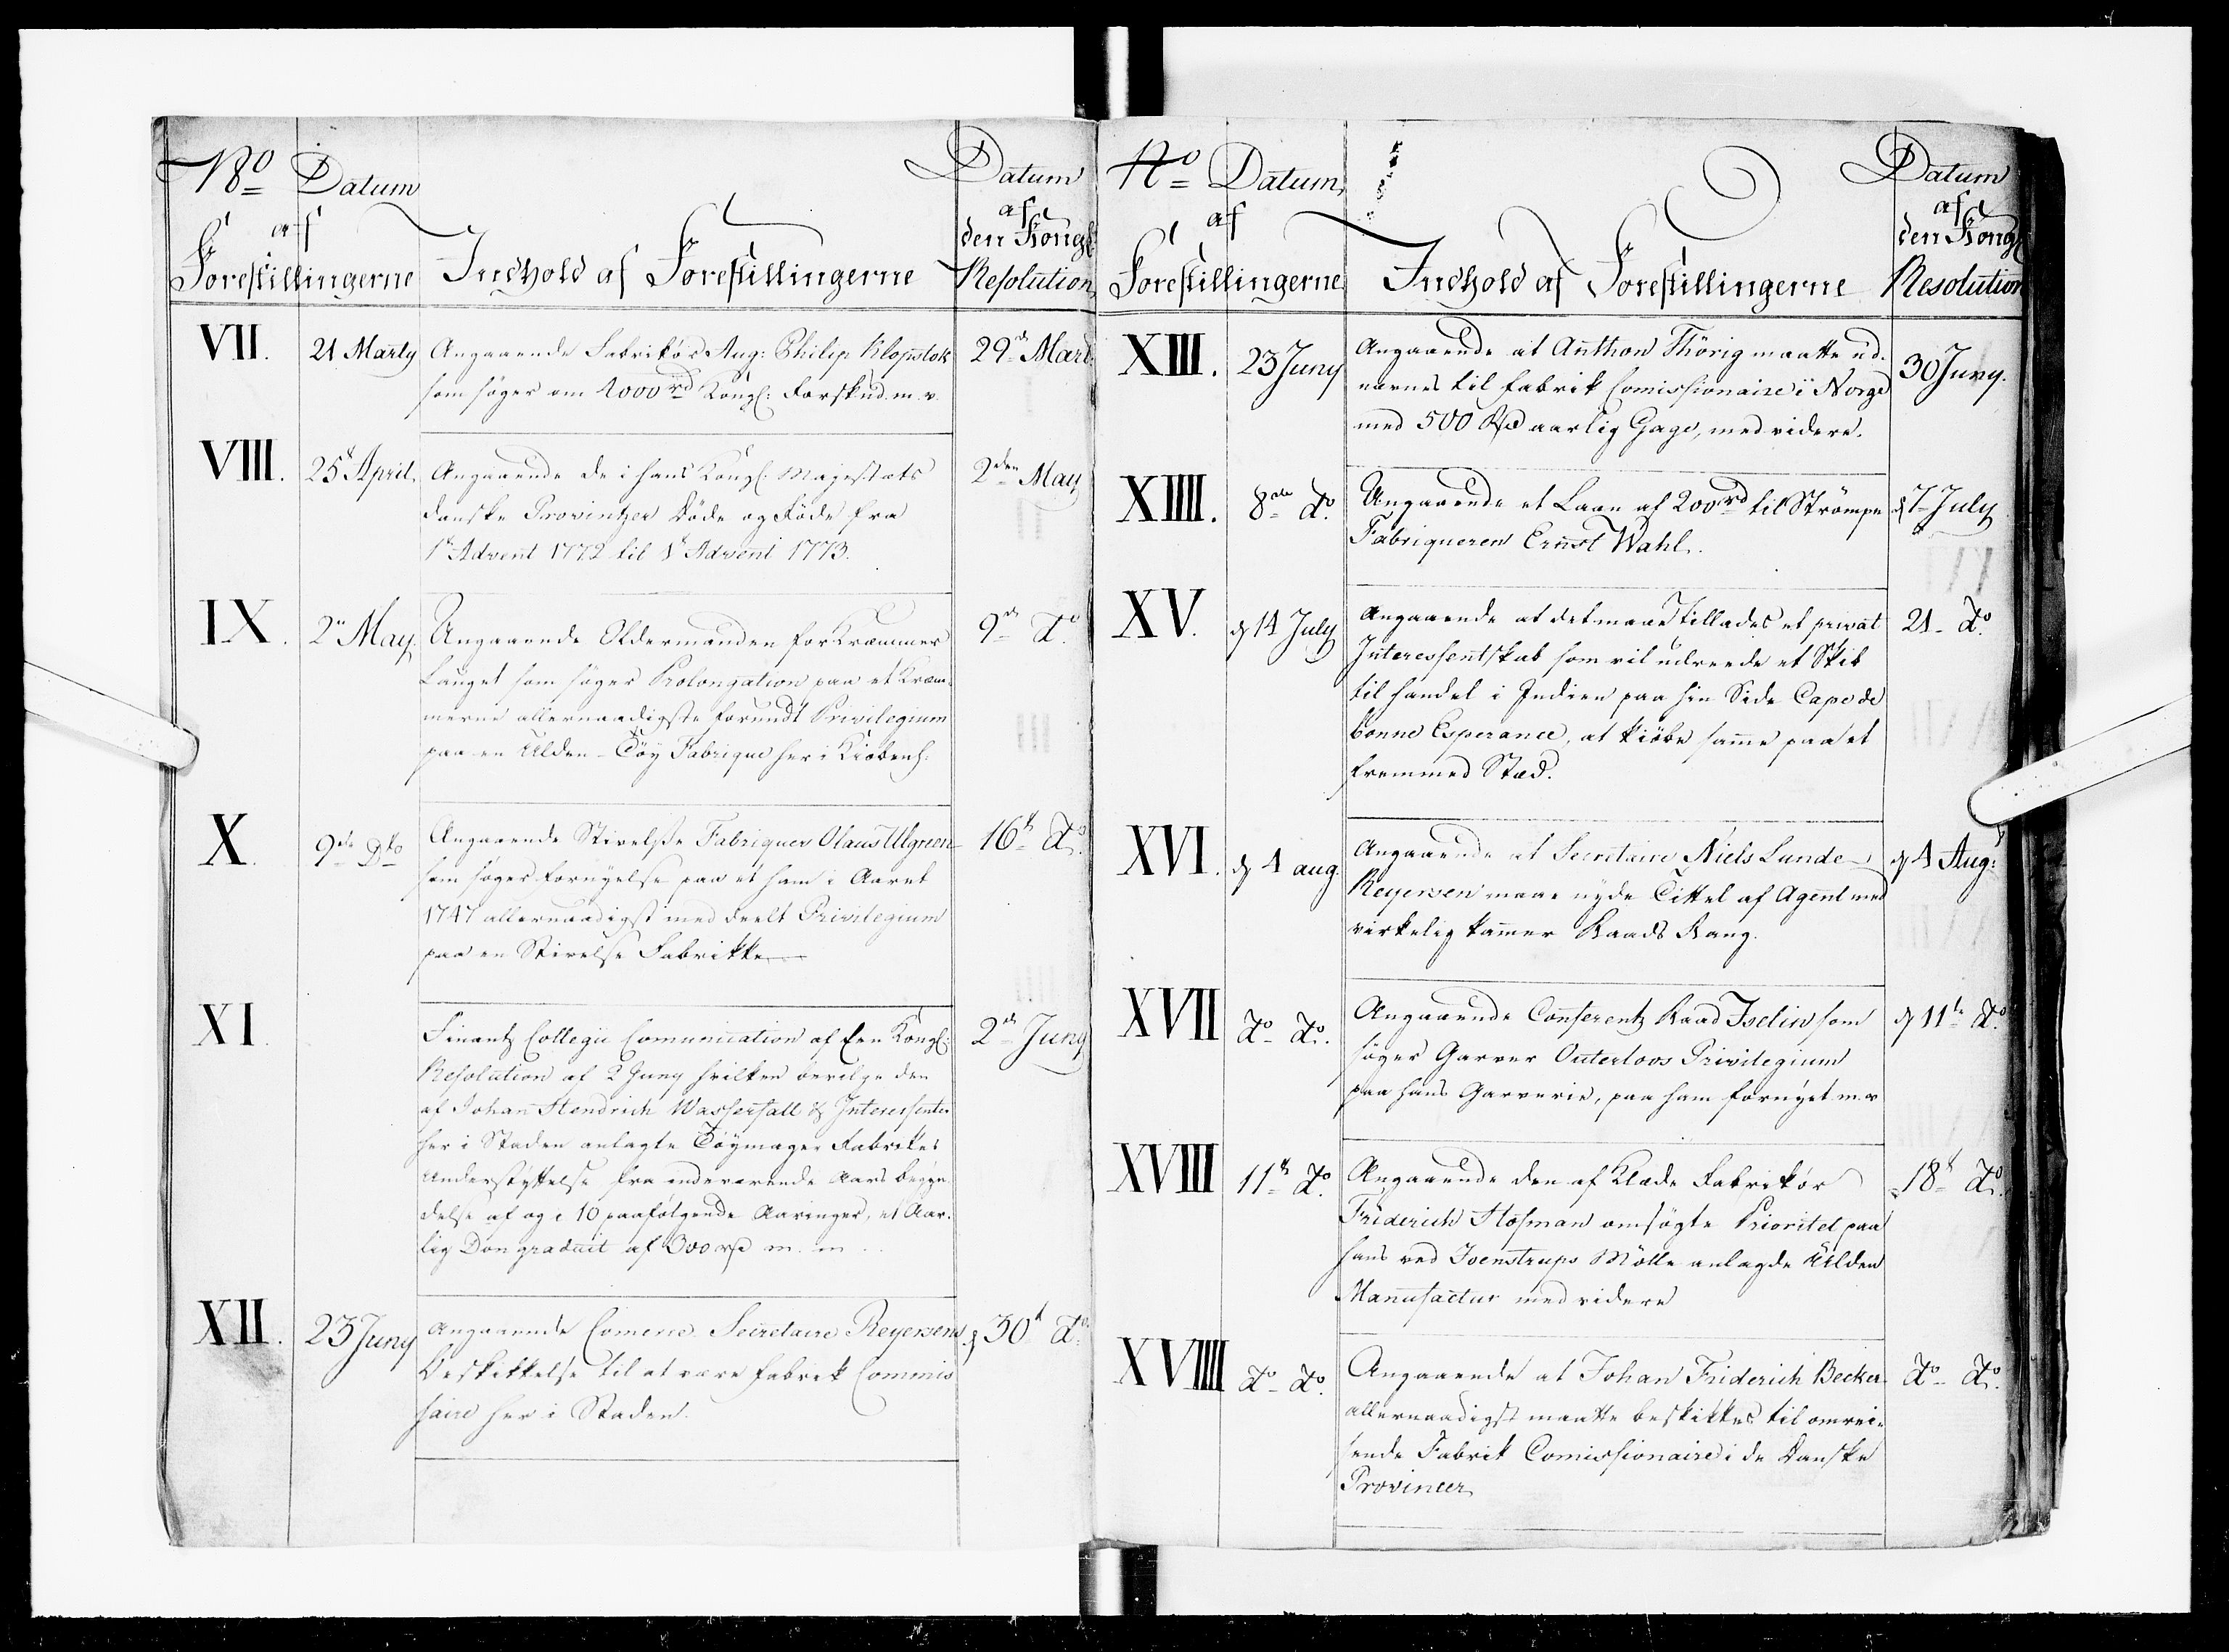 No Datum
af
Forestillingerne
Indhold af Forestillingerne
Datum
af
den Kongl
Resolution
VII. 21 Marty Angaaende Fabrikør Aug: Philip Klopstok 29de Mart:
som søger om 4000 rd Kongl: Forskud m. v.
VIII. 25t April. Angaaende de i hans Kongl: Majestæts 2den May
danske Provintzer Døde og Fødde fra
1te Advent 1772 til 1te Advent 1773.
IX. 2en May. Angaaende Oldermanden for Kræmmer 9de do.
Lauget som søger Prolongation paa et Kræm-
merne allernaadigste forundt Privilegium
paa en Ulden-Töy Fabrique her i Kiöbenh.
X. 9de Dto Angaaende Stivelsse Fabriqueur Olaus Ulgreen 16t do.
som søger fornyelse paa et ham i Aaret
1747 allernaadigst meddeelt Privilegium
paa en Stivelse Fabrikke
XI. Finantz Collegii Comunication af Een Kongl: 2de Juny
Resolution af 2 Juny hvilken bevilge den
af Johan Hendrich Wasserfall & Interessenter
her i Staden anlagte Töymager Fabrikes
Understyttelse fra indeværende Aars begyn-
delse af og i 10 paafølgende Aaringer, et Aar-
lig Don graduit af 300 rd m. m.
XII. 23 Juny Angaaende Comerce Secretaire Reyersens d 30t do.
Beskikkelse til at være Fabrik Commis
saire her i Staden.
No Datum
af
Forestillingerne
Indhold af Forestillingerne
Datum
af
den Kongl
Resolution
XIII. 23 Juny Angaaende at Anthon Thörig maatte ud- 30 Juny.
nævnes til Fabrik Comissionaire i Norge
med 500 Rd aarlig Gage, med videre.
XIIII. 8de do. Angaaende et Laan af 200 rd til Strömpe d 7 July
Fabriqueren Ernst Wahl.
XV. d 14 July Angaaende at det maae tillades et privat 21 do.
Interessentskab som vil udreede et Skib
til handel i Indien paa hin Side Cape de
bonne Esperance, at kiöbe samme paa et
fremmed Stæd.
XVI. d 4 aug. Angaaende at Secretaire Niels Lunde d 4 Aug:
Reyersen maae nyde Tittel af Agent med
virkelig Kammer Raads Rang.
XVII do do. Angaaende Conferentz Raad Iselin som d 11te do.
søger Garver Outerloos Privilegium
paa hans Garverie, paa ham fornyet m. v
XVIII 11te do. Angaaende den af Klæde Fabrikør 18t do.
Friderich Hofman ansøgte Prioritet paa
hans ved Isenstrups Mölle anlagde Ulden
Manufactur med videre
XVIIII do do. Angaaende at Johan Friderich Becker do do.
allernaadigst maatte beskikkes til omrei-
sende Fabrik Comissionaire i de Danske
Provincer